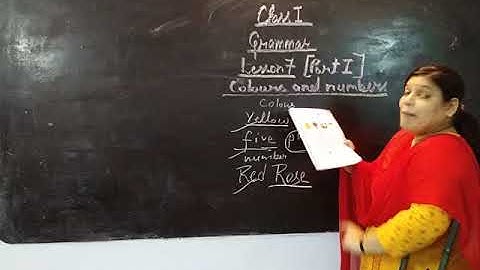 Class I
Grammar
Lesson 7 [Part I]
Colours and numbers
Colour
Yellow
five
number
Red Rose